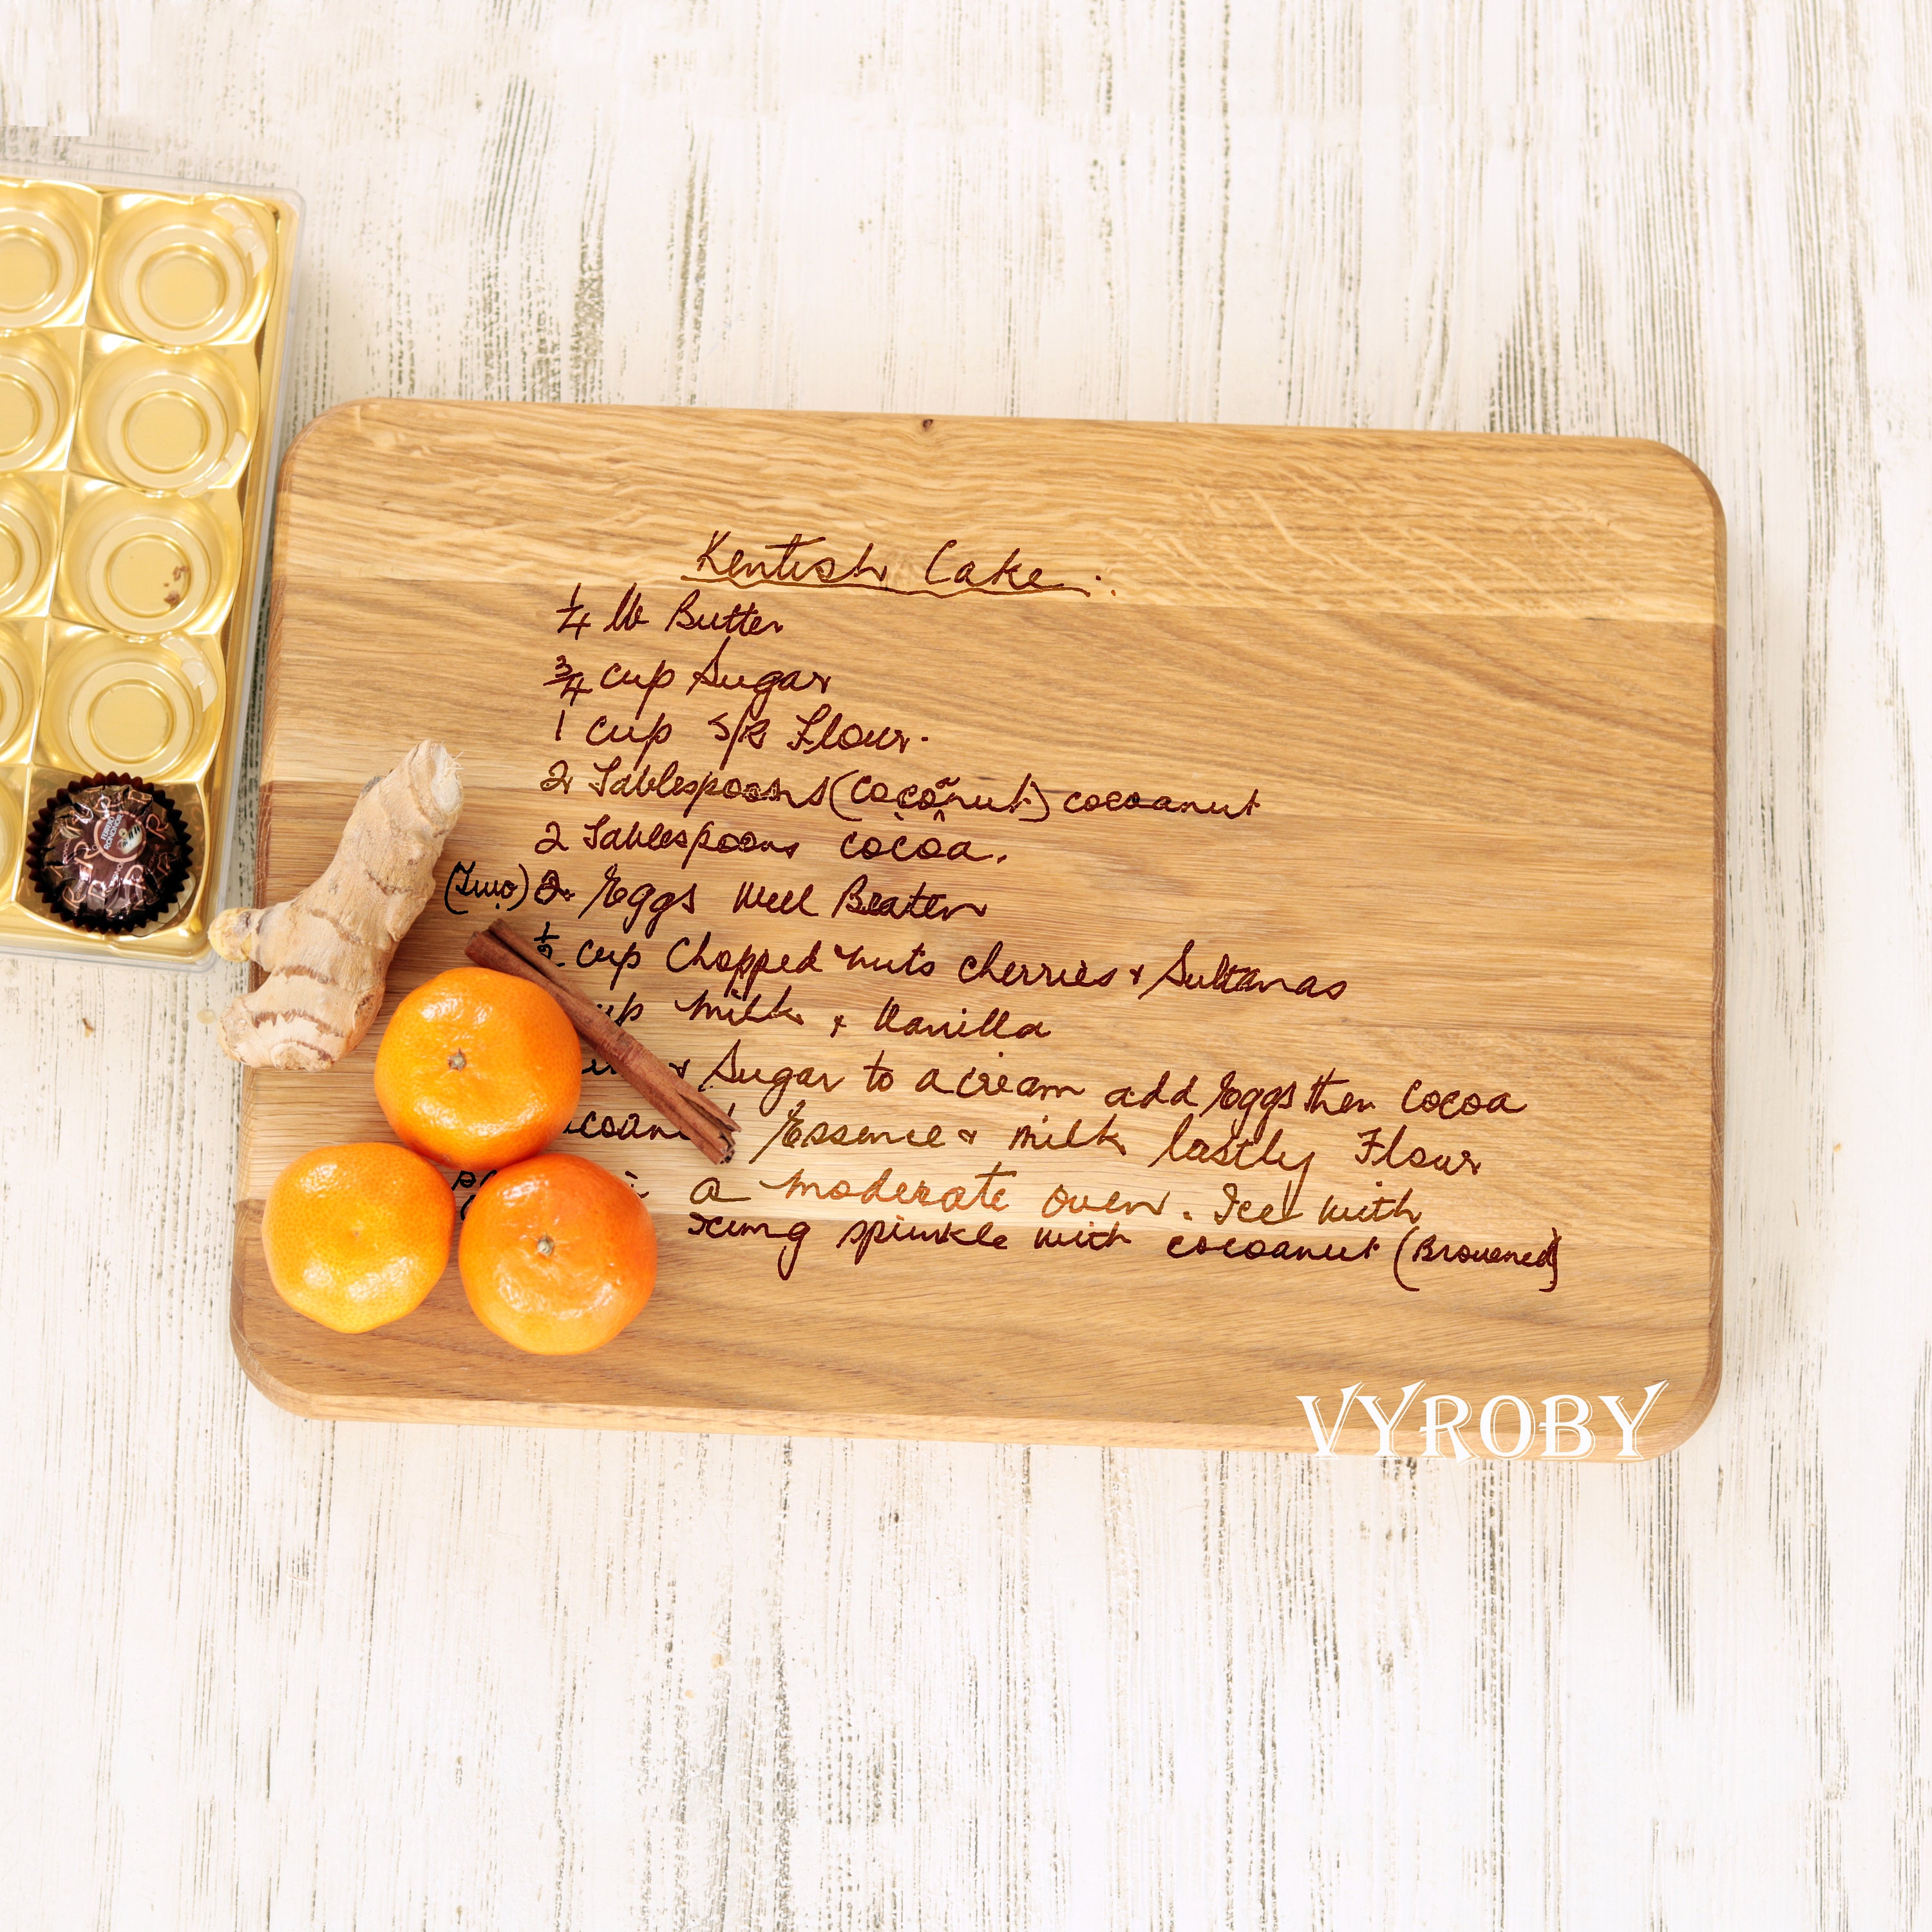 Kentish Cake.
1/4 lb Butter
3/4 cup Sugar
1 cup S/R Flour.
2 Tablespoons (cocoanut) cocoanut
2 Tablespoons cocoa.
(Two) 2 Eggs Well Beaten
1/2 cup Chopped nuts cherries & Sultanas
milk & Vanilla
& Sugar to a cream add Eggs then Cocoa
Essence & milk lastly Flour
a moderate oven. Ice with
spinkle with cocoanut (Browned)
VYROBY